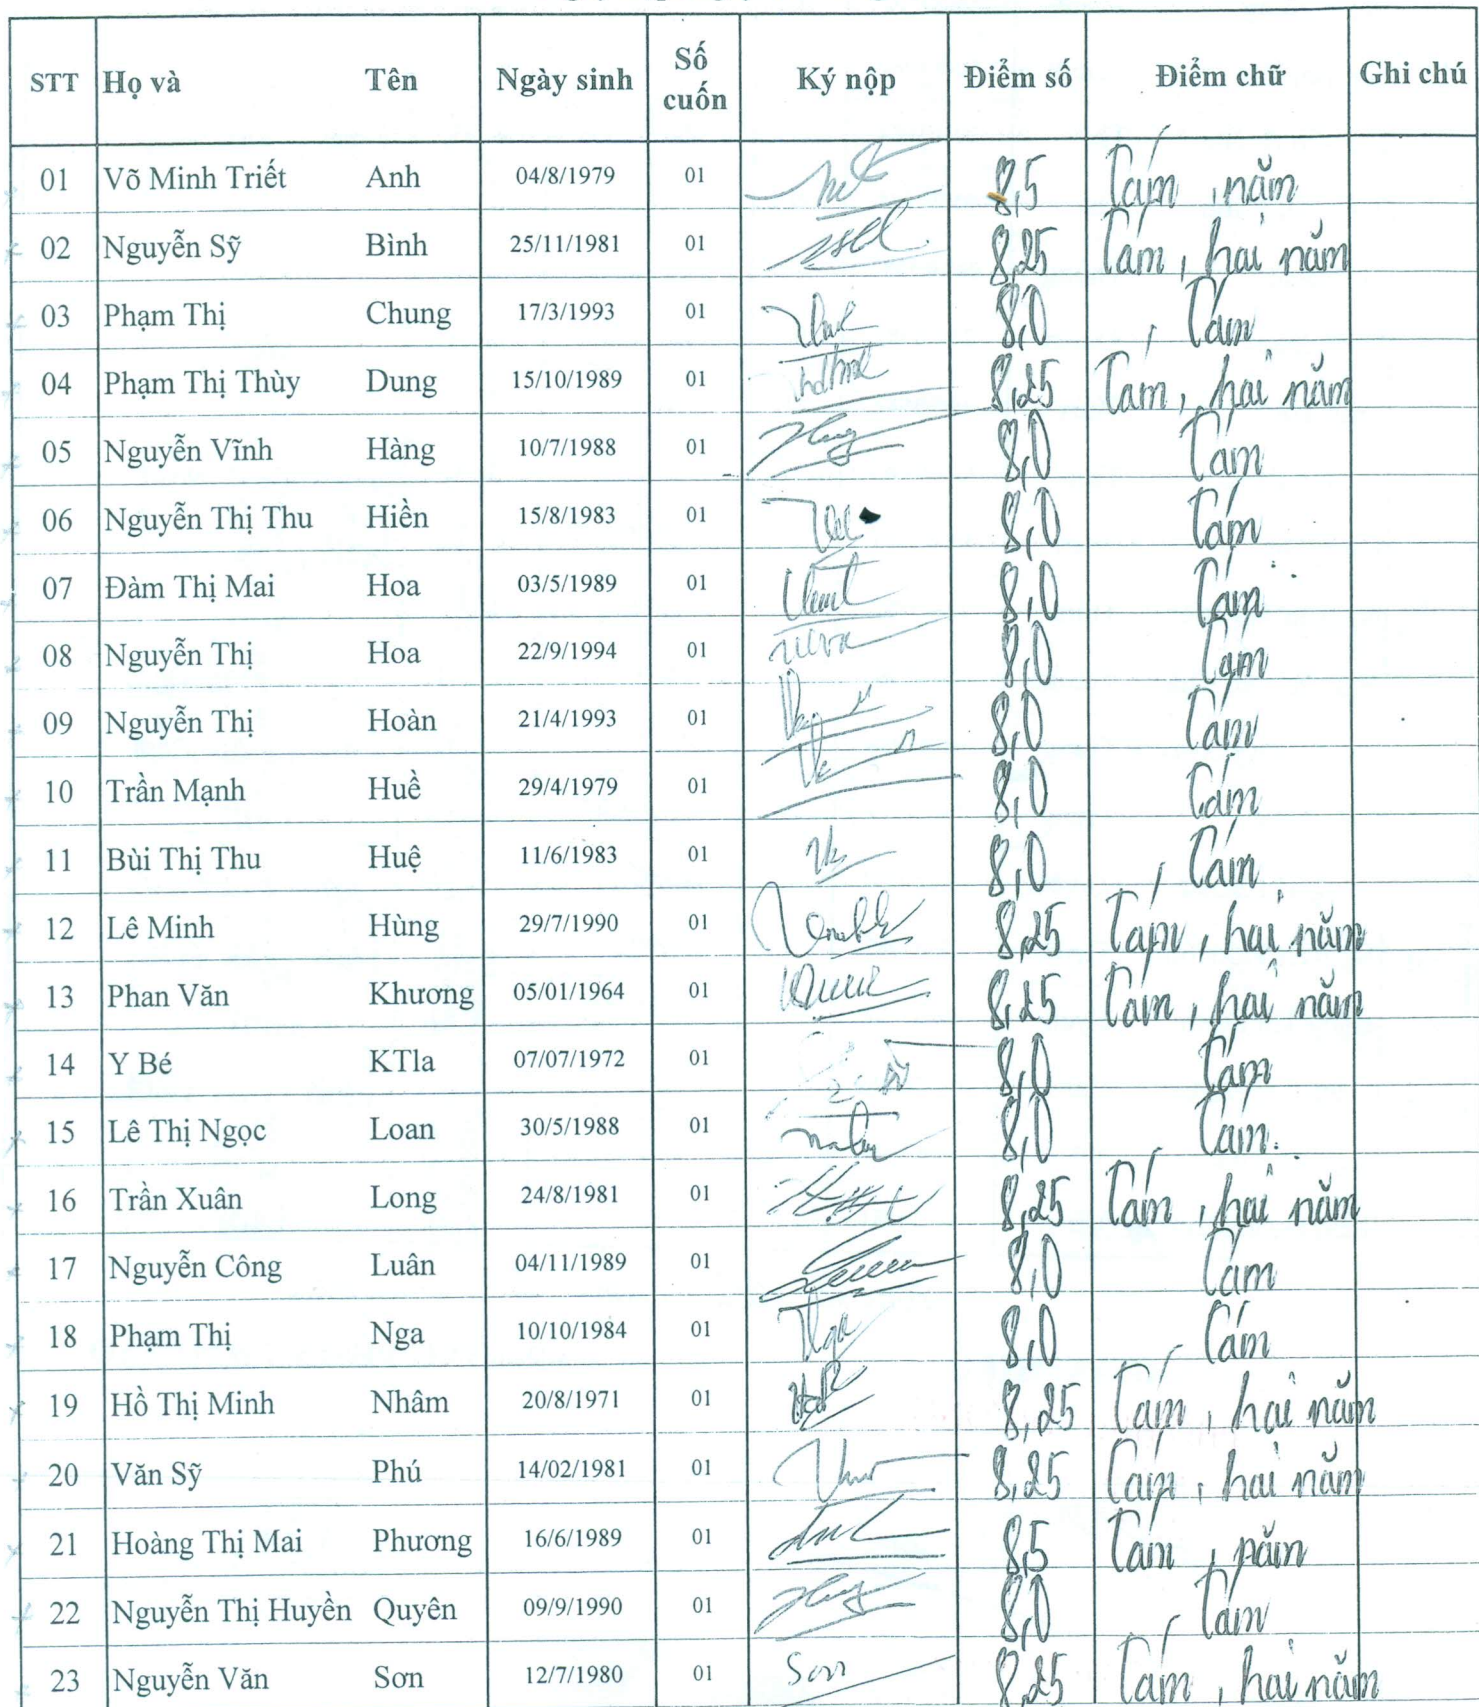 STT Họ và Tên Ngày sinh Số cuốn Ký nộp Điểm số Điểm chữ Ghi chú
01 Võ Minh Triết Anh 04/8/1979 01 8,5 Tám, năm
02 Nguyễn Sỹ Bình 25/11/1981 01 8,25 Tám, hai năm
03 Phạm Thị Chung 17/3/1993 01 8,0 Tám
04 Phạm Thị Thùy Dung 15/10/1989 01 8,25 Tám, hai năm
05 Nguyễn Vĩnh Hàng 10/7/1988 01 8,0 Tám
06 Nguyễn Thị Thu Hiền 15/8/1983 01 8,0 Tám
07 Đàm Thị Mai Hoa 03/5/1989 01 8,0 Tám
08 Nguyễn Thị Hoa 22/9/1994 01 8,0 Tám
09 Nguyễn Thị Hoàn 21/4/1993 01 8,0 Tám
10 Trần Mạnh Huề 29/4/1979 01 8,0 Tám
11 Bùi Thị Thu Huệ 11/6/1983 01 8,0 Tám
12 Lê Minh Hùng 29/7/1990 01 8,25 Tám, hai năm
13 Phan Văn Khương 05/01/1964 01 8,25 Tám, hai năm
14 Y Bé KTla 07/07/1972 01 8,0 Tám
15 Lê Thị Ngọc Loan 30/5/1988 01 8,0 Tám.
16 Trần Xuân Long 24/8/1981 01 8,25 Tám, hai năm
17 Nguyễn Công Luân 04/11/1989 01 8,0 Tám
18 Phạm Thị Nga 10/10/1984 01 Nga 8,0 Tám
19 Hồ Thị Minh Nhâm 20/8/1971 01 8,25 Tám, hai năm
20 Văn Sỹ Phú 14/02/1981 01 8,25 Tám, hai năm
21 Hoàng Thị Mai Phương 16/6/1989 01 8,5 Tám, năm
22 Nguyễn Thị Huyền Quyên 09/9/1990 01 8,0 Tám
23 Nguyễn Văn Sơn 12/7/1980 01 Sơn 8,25 Tám, hai năm